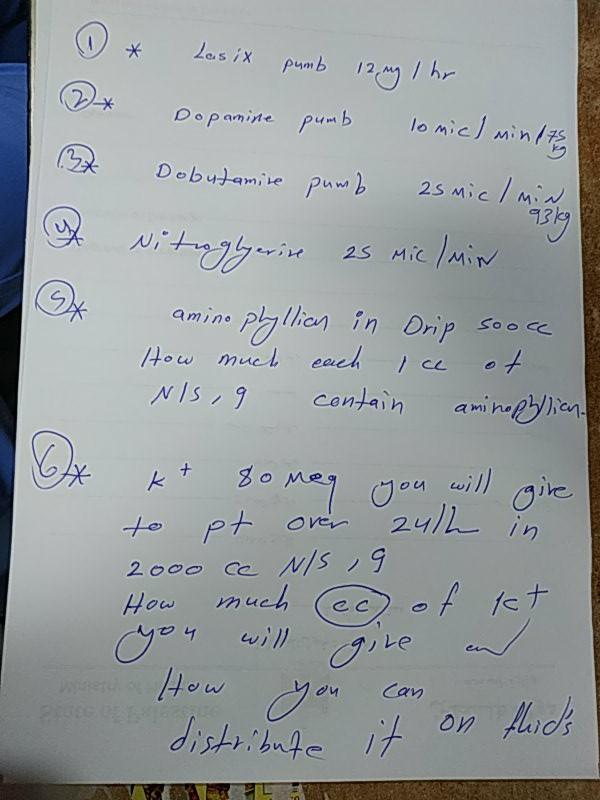 1 * Lasix pumb 12 mg / hr
2 * Dopamine pumb 10 mic / min / 75 kg
3 * Dobutamine pumb 25 mic / min 93 kg
4 * Nitroglyerine 25 mic / min
5 * amino phyllien in Drip 500 cc
How much each 1 cc of
N/S, 9 contain aminophyllien.
6 * K+ 80 Meq you will give
to pt over 24/h in
2000 cc N/S, 9
How much cc of K+
you will give and
How you can
distribute it on fluid's
Ministry of
State of Palestine